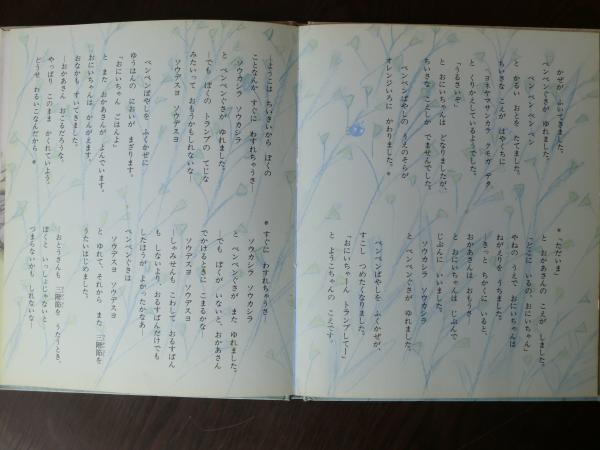 かぜが、ふいてきました。
ペンペンぐさが、ゆれました。
ペンペンペンペン
と かるい おとを たてました。
ちいさな こえが はやぐちに
「ヨネヤマサンカラ クモガ デタ」
と くりかえしているようでした。
「うるさいぞ」
と おにいちゃんは どなりましたが、
ちいさな こえしか でませんでした。
ペンペンばやしの うえのそらが
オレンジいろに かわりました。*
*「ただいま」
と おかあさんの こえが しました。
「どこに いるの おにいちゃん」
やねの うえで おにいちゃんは
ねがえりを うちました。
―きっと ちかくに いると、
おかあさんは おもうさ―
と おにいちゃんは じぶんで
じぶんに いいました。
ソウカシラ ソウカシラ
と ペンペンぐさが ゆれました。
ペンペンばやしを ふくかぜが、
すこし つめたくなりました。
「おにいちゃーん トランプしてー」
と ようこちゃんの こえです。
―ようこは ちいさいから ぼくの
ことなんか、すぐに わすれちゃうさ―
ソウカシラ ソウカシラ
と ペンペンぐさが ゆれました。
―でも ぼくの トランプの てじな
みたいって おもうかもしれないな―
ソウデスヨ ソウデスヨ
ペンペンばやしを、ふくかぜに
ゆうはんの においが まざります。
「おにいちゃん ごはんよ」
と また おかあさんが よんでいます。
おにいちゃんは かんがえます。
おなかも すいてきました。
―おかあさん おこるだろうな、
やっぱり このまま かくれていよう。
どうせ わるいこなんだから―*
*すぐに わすれちゃうさ―
ソウカシラ ソウカシラ
と ペンペンぐさが また ゆれました。
―でも ぼくが いないと、おかあさん
でかけるときに こまるかな―
ソウデスヨ ソウデスヨ
―しゃみせんも こわして おるすばん
も しないより、おるすばんだけでも
したほうが よかったかなあ―
ソウデスヨ ソウデスヨ
ペンペンぐさは
と ゆれて、それから また 三階節を
うたいはじめました。
おとうさんも 三階節を うたうとき、
ぼくと いっしょじゃないと
つまらないかも しれないな―